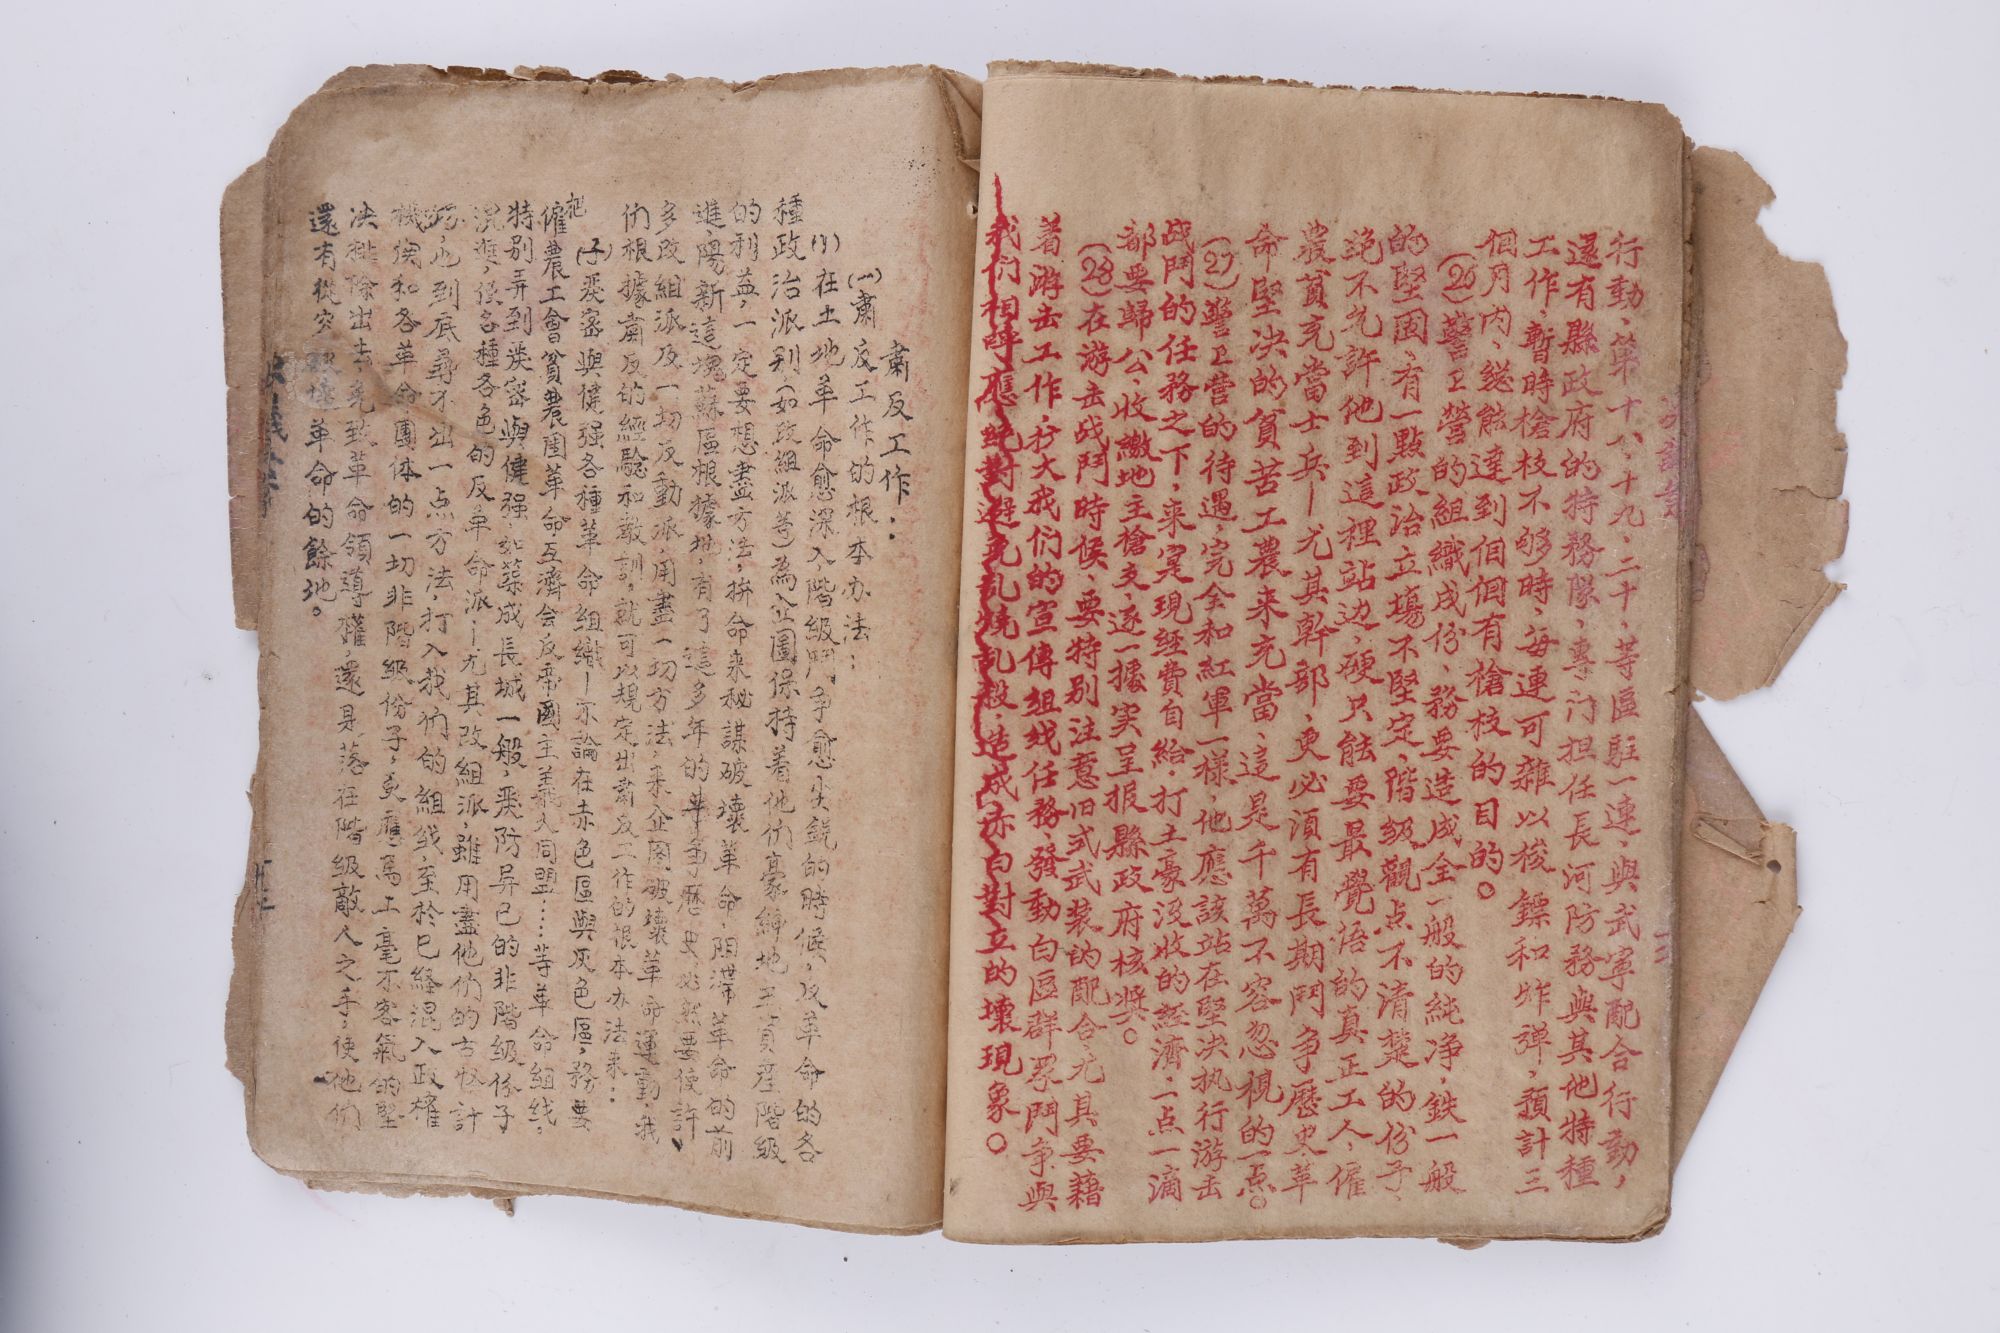 行動、第十八、十九、二十、等區駐一連、與武寧配合行動，
還有縣政府的特務隊、專门担任長河防務與其他特種
工作、暫時槍枝不够時、每連可雜以梭鏢和炸弹，預計三
個月内、総能達到個個有槍枝的目的。
(26)警卫營的組織成份、務要造成全一般的純净，鉄一般
的堅固、有一點政治立塲不堅定、階級觀点不清楚的份子、
絶不允許他到這裡站边、硬只能要最覺悟的真正工人、僱
農貧充當士兵—尤其幹部、更必須有長期鬥争歷史、革
命堅决的貧苦工農来充當、這是千萬不容忽視的一点。
(27)警卫营的待遇完全和紅軍一樣、他應該站在堅决执行游击
战鬥的任務之下、来寔現経費自給、打土豪没收的経濟、一点一滴
都要歸公、收繳地主槍支、逐一據实呈报縣政府核奖。
(28)在游击战鬥時候、要特别注意旧式武装的配合、尤其要藉
着游击工作、扩大我们的宣傳組线任務、發動白區群眾鬥争與
我们相呼應、絶對避免乱燒乱殺、造成赤白對立的壞現象。
肅反工作：
(一)肅反工作的根本办法：
(1)在土地革命愈深入、階級鬥争愈尖銳的時候，反革命的各
種政治派别(如改組派等)為企圖保持着他们豪紳地主資產階級
的利益，一定要想盡方法，拚命来秘謀破壞革命、阻滞革命的前
進、陽新這塊蘇區根據地，有了這多年的革争歷史、必然要使許
多改組派及一切反動派、用盡一切方法、来企圖破壞革命運動，我
们根據肅反的經驗和教訓，就可以規定出肅反工作的根本办法来：
(子)嚴密與健强各種革命組織—不論在赤色區與灰色區，務要
把
僱農工會貧農團革命互濟会反帝國主義大同盟……等革命組线，
特别弄到嚴密與健强、如築成長城一般，嚴防异己的非階級份子
混進，使各種各色的反革命派—尤其改組派，雖用盡他们的古怪計
巧，也到底尋不出一点方法，打入我们的組线、至於已経混入政權
機関和各革命團体的一切非階級份子，更應馬上毫不客氣的堅
决排除出去、免致革命領導權，還是落在階級敵人之手，使他们
還有從容破壞革命的餘地。